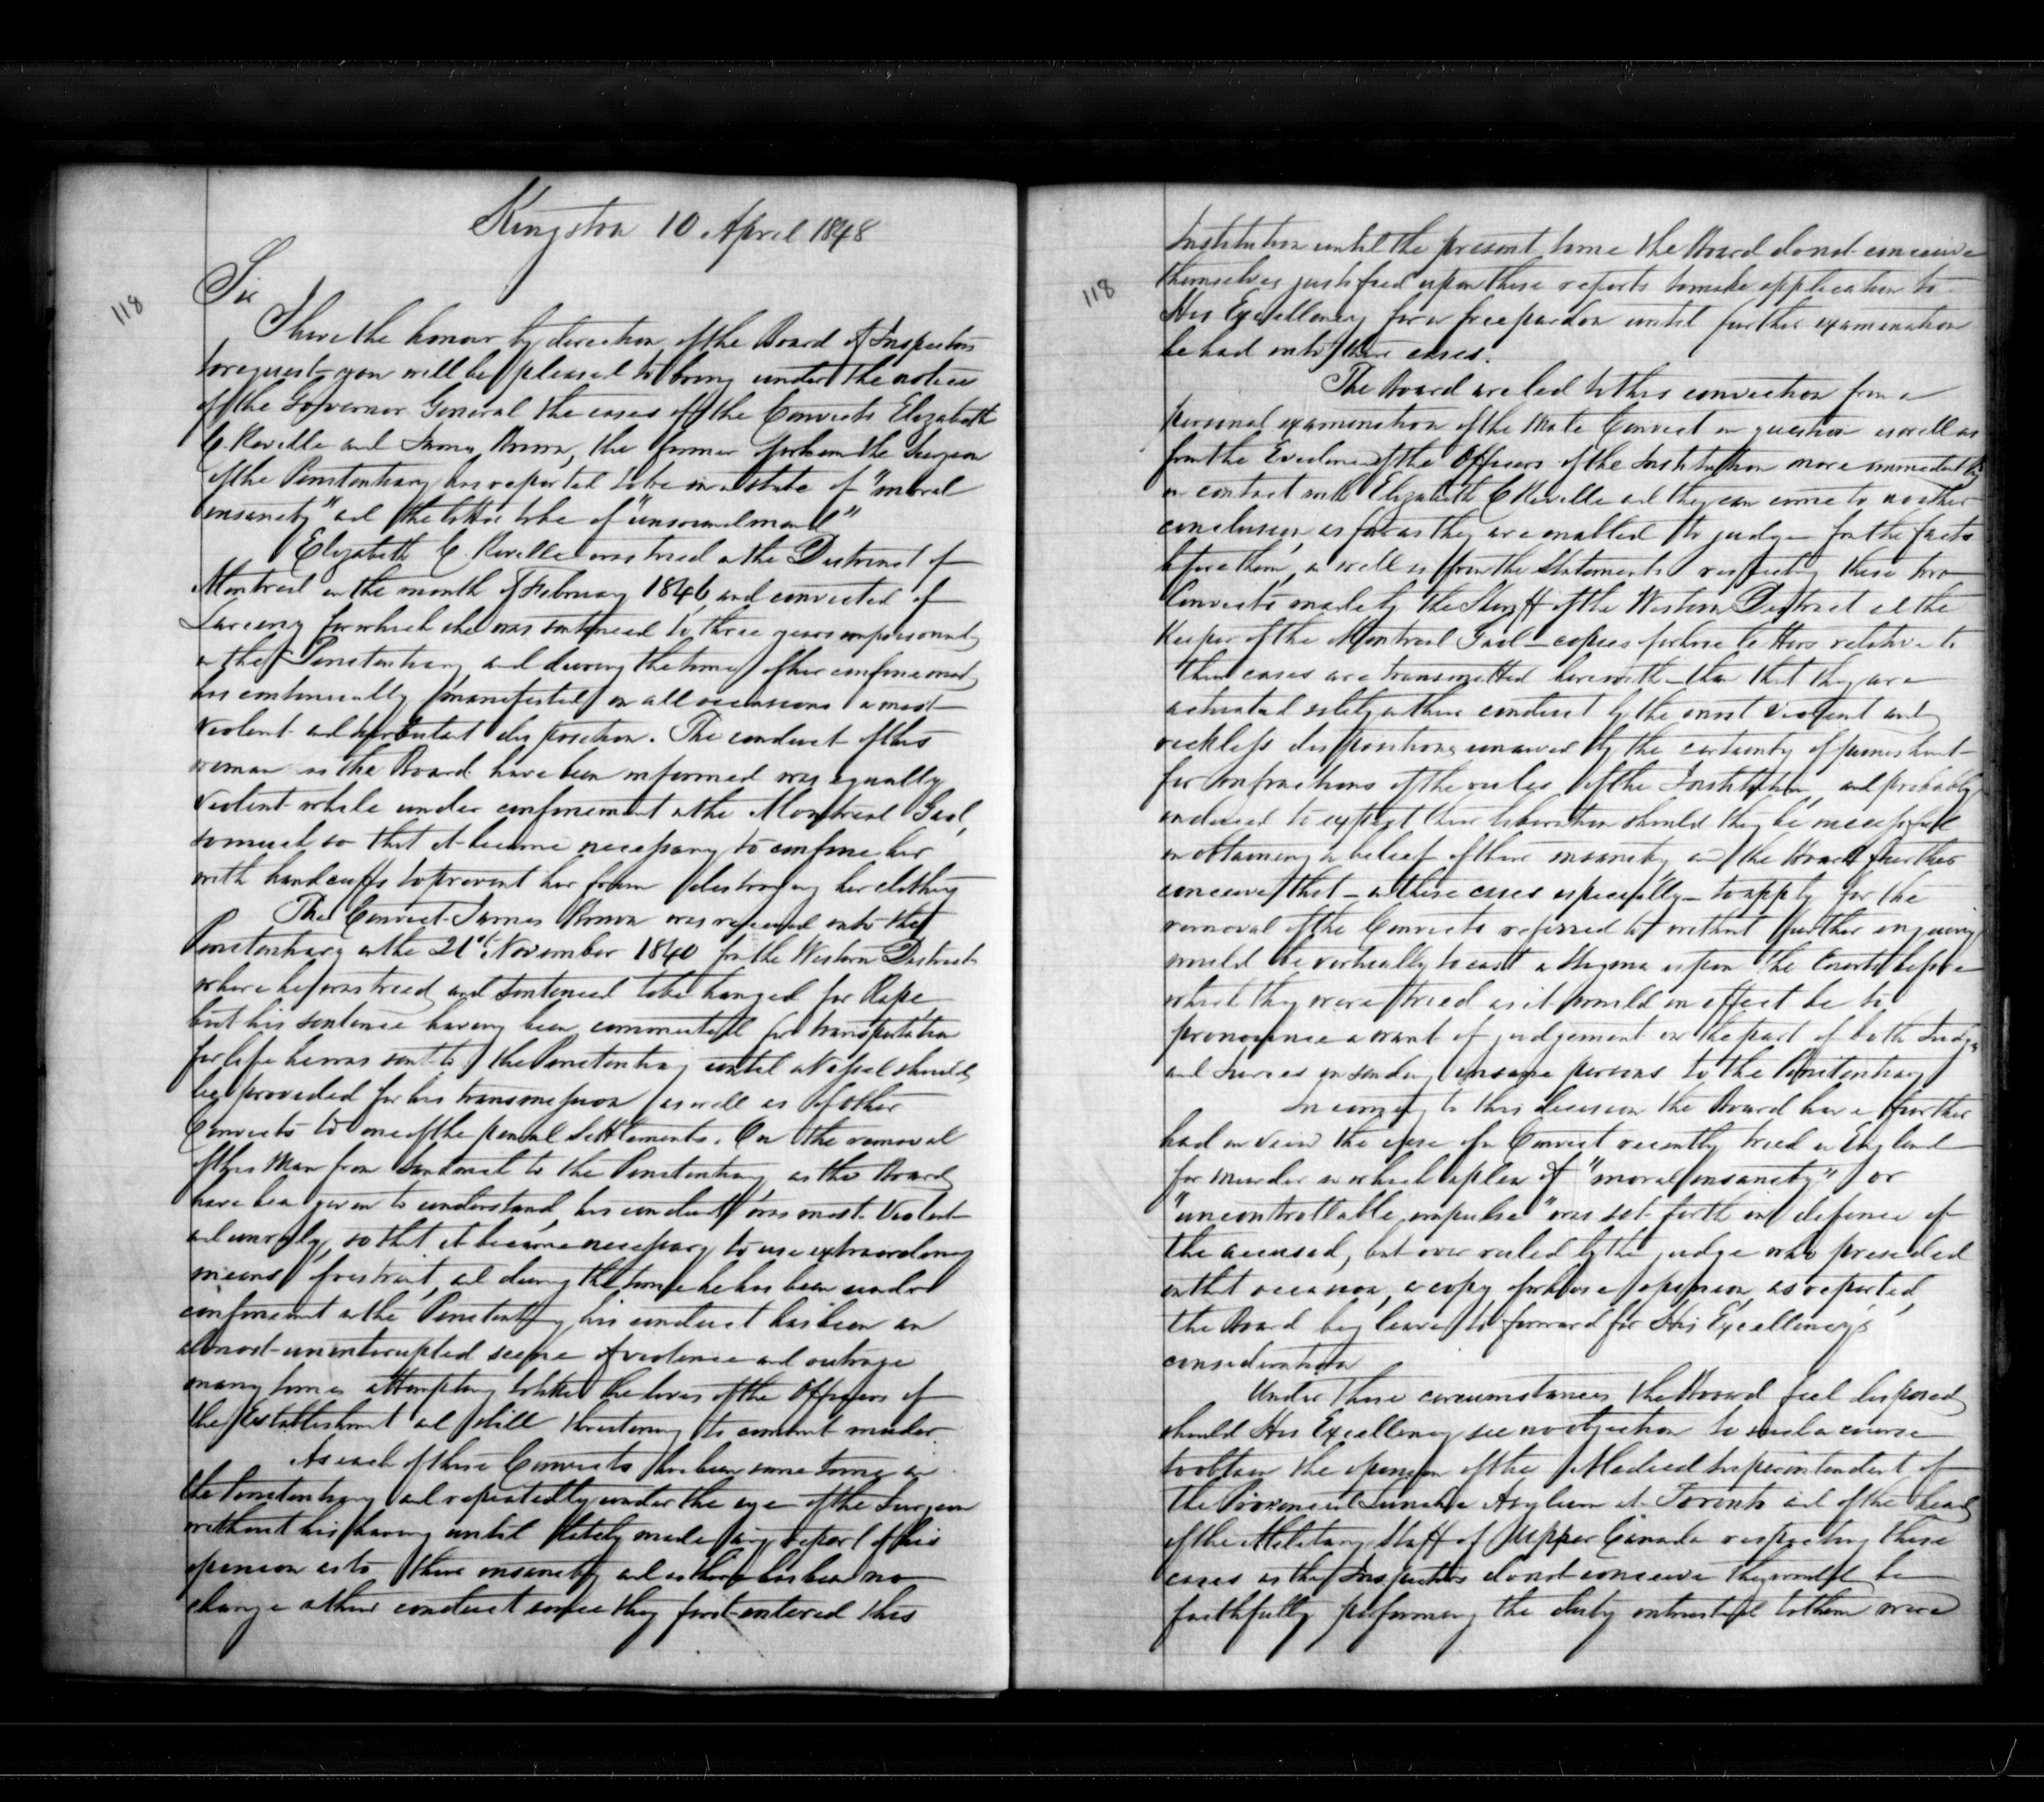 Kingston 10 April 1848
118
Sir
I have the honour by direction of the Board of Inspectors
to request you will be pleased to bring under the notice
of the Governor General the cases of the Convicts Elizabeth
C Reville and James Brown, the former of whom the Surgeon
of the Penitentiary has reported to be in a state of "moral
insanity" and the latter to be of "unsound mind"
Elizabeth C. Reville was tried in the District of
Montreal in the month of February 1846 and convicted of
Larceny for which she was sentenced to three years imprisonment
in the Penitentiary and during the time of her confinement
has continually manifested on all occasions a most
violent and turbulent disposition. The conduct of this
woman as the Board have been informed was equally
violent while under confinement in the Montreal Gaol,
so much so that it became necessary to confine her
with handcuffs to prevent her from destroying her clothing
The Convict James Brown was received into the
Penitentiary on the 21st November 1840 from the Western District
where he was tried and sentenced to be hanged for Rape
but his sentence having been commuted for transportation
for life he was sent to the Penitentiary until a Vessel should
be provided for his transmission as well as of other
Convicts to one of the penal Settlements. On the removal
of this Man from Sandwich to the Penitentiary as the Board
have been given to understand, his conduct was most Violent
and unruly, so that it became necessary to use extraordinary
means of restraint, and during the time he has been under
confinement in the Penitentiary his conduct has been an
almost uninterupted scene of violence and outrage
many times attempting to take the lives of the Officers of
the Establishment and still threatening to commit murder
As each of these Convicts has been some time in
the Penitentiary and repeatedly under the eye of the Surgeon
without his having until lately made any report of his
opinion as to their insanity and as there has been no
change in their conduct since they first entered this
118
Institution until the present time the Board do not conceive
themselves justified upon these reports to make application to
His Excellency for a free pardon until further examination
be had into their cases.
The Board are led to this conviction from a
personal examination of the Male Convict in question as well as
from the Evidence of the Officers of the Institution more immediately
in contact with Elizabeth C Reville and they can come to no other
conclusion, as far as they are enabled to judge from the facts
before them, as well as from the Statements respecting these two
Convicts made by the Sheriff of the Western District and the
Keeper of the Montreal Gaol – copies of whose letters relative to
their cases are transmitted herewith – than that they are
actuated solely in their conduct by the most violent and
reckless dispositions unawed by the certainty of punishment
for infractions of the rules of the Institution, and probably
induced to expect their liberation should they be successful
in obtaining a belief of their insanity and the Board further
conceive that – in these cases especially – to apply for the
removal of the Convicts referred to without further enquiry
would be virtually to cast a stigma upon the Courts before
which they were tried as it would in effect be to
pronounce a want of judgement on the part of both Judges
and Juries in sending insane persons to the Penitentiary
In coming to this decision the Board have further
had in view the case of a Convict recently tried in England
for murder in which a plea of "moral insanity" or
"uncontrollable impulse" was set forth in defence of
the accused, but over ruled by the judge who presided
on that occasion, a copy of whose opinion, as reported,
the Board beg leave to forward for His Excellency's
consideration
Under these circumstances the Board feel disposed
should His Excellency see no objection to such a course
to obtain the opinion of the Medical Superintendent of
the Provincial Lunatic Asylum at Toronto and of the head
of the Military Staff of Upper Canada respecting these
cases as the Inspectors do not conceive they would be
faithfully performing the duty entrusted to them were